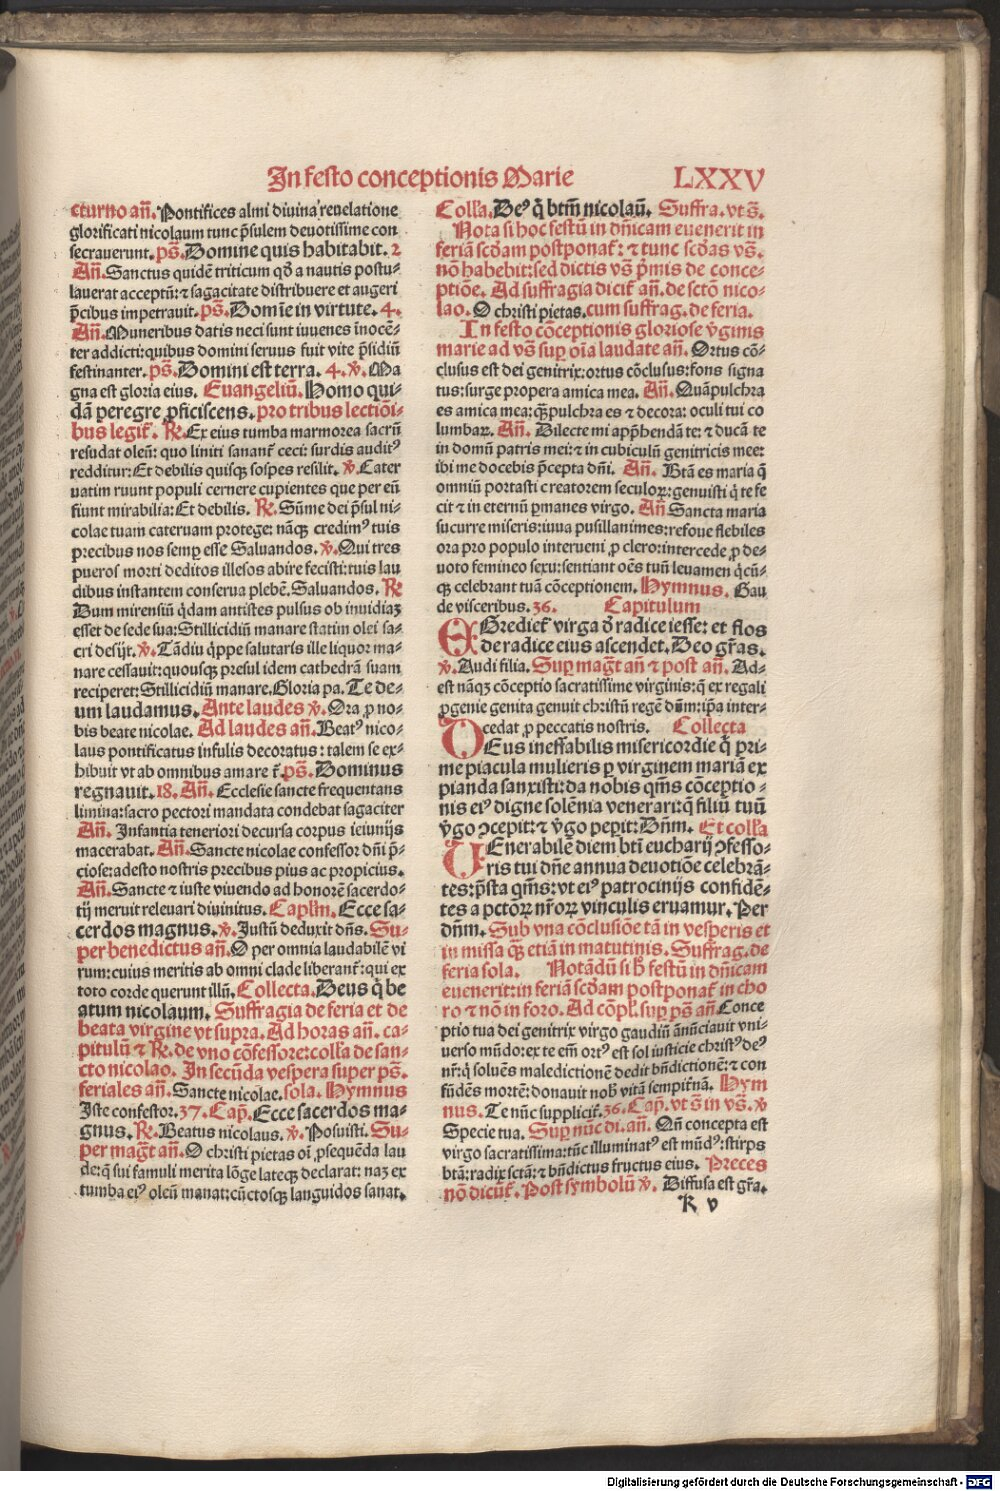 In festo conceptionis Marie LXXV
cturno añ. Pontifices almi diuina reuelatione
glorificati nicolaum tunc p̄sulem deuotissime con
secrauerunt. ps̄. Domine quis habitabit. 2
Añ. Sanctus quidē triticum qd̄ a nautis postu-
lauerat acceptū: ⁊ sagacitate distribuere et augeri
p̄cibus impetrauit. ps̄. Domīe in virtute. 4.
Añ. Muneribus datis neci sunt iuuenes inocē-
ter addicti: quibus domini seruus fuit vite p̄sidiū
festinanter. ps̄. Domini est terra. 4. v̄. Ma
gna est gloria eius. Euangeliū. Homo qui-
dā peregre ꝓficiscens. pro tribus lectiōi-
bus legit᷑. R̄. Ex eius tumba marmorea sacrū
resudat oleū: quo liniti sanant᷑ ceci: surdis auditꝰ
redditur: Et debilis quisq̄ sospes resilit. v̄. Cater
uatim ruunt populi cernere cupientes que per eū
fiunt mirabilia: Et debilis. R̄. Sūme dei p̄sul ni-
colae tuam cateruam protege: nāq̄ credimꝰ tuis
precibus nos semꝑ esse Saluandos. v̄. Qui tres
pueros morti deditos illesos abire fecisti: tuis lau
dibus instantem conserua plebē. Saluandos. R̄
Dum mirensiū q̄dam antistes pulsus ob inuidiaꝫ
esset de sede sua: Stillicidiū manare statim olei sa-
cri desijt. v̄. Tādiu q̄ppe salutaris ille liquor ma-
nare cessauit: quousq̄ presul idem cathedrā suam
reciperet: Stillicidiū manare. Gloria pa. Te de-
um laudamus. Ante laudes v̄. Ora ꝓ no-
bis beate nicolae. Ad laudes añ. Beatꝰ nico-
laus pontificatus infulis decoratus: talem se ex-
hibuit vt ab omnibus amare t᷑. ps̄. Dominus
regnauit. 18. Añ. Ecclesie sancte frequentans
limina: sacro pectori mandata condebat sagaciter
Añ. Infantia teneriori decursa corpus ieiunijs
macerabat. Añ. Sancte nicolae confessor dn̄i p̄-
ciose: adesto nostris precibus pius ac propicius.
Añ. Sancte ⁊ iuste viuendo ad honorē sacerdo-
tij meruit releuari diuinitus. Caplm̄. Ecce sa-
cerdos magnus. v̄. Justū deduxit dn̄s. Su-
per benedictus añ. O per omnia laudabilē vi
rum: cuius meritis ab omni clade liberant᷑: qui ex
toto corde querunt illū. Collecta. Deus q̄ be
atum nicolaum. Suffragia de feria et de
beata virgine vt supra. Ad horas añ. ca-
pitulū ⁊ R̄. de vno cōfessore: coll̄a de san-
cto nicolao. In secūda vespera super ps̄.
feriales añ. Sancte nicolae. sola. Hymnus
Iste confestor. 37. Cap̄. Ecce sacerdos ma-
gnus. R̄. Beatus nicolaus. v̄. Posuisti. Su-
per magt᷑ añ. O christi pietas oī ꝓsequēda lau
de: q̄ sui famuli merita lōge lateqꝫ declarat: naꝫ ex
tumba eiꝰ oleū manat: cūctosqꝫ languidos sanat.
Coll̄a. Deꝰ q̄ btm̄ nicolaū. Suffra. vt s̄.
Nota si hoc festū in dn̄icam euenerit in
feriā scd̄am postponat᷑: ⁊ tunc scd̄as vs̄.
nō habebit: sed dictis vs̄ p̄mis de conce-
ptiōe. Ad suffragia dicit᷑ añ. de sctō nico-
lao. O christi pietas. cum suffrag. de feria.
In festo cōceptionis gloriose v̄ginis
marie ad vs̄ suꝑ oīa laudate añ. Ortus cō-
clusus est dei genitrix: ortus cōclusus: fons signa
tus: surge propera amica mea. Añ. Quā pulchra
es amica mea: q̄ꝫ pulchra es ⁊ decora: oculi tui co
lumbaꝝ. Añ. Dilecte mi app̄hendā te: ⁊ ducā te
in domū patris mei: ⁊ in cubiculū genitricis mee:
ibi me docebis p̄cepta dn̄i. Añ. Btā es maria q̄
omniū portasti creatorem seculoꝝ: genuisti q̄ te fe
cit ⁊ in eternū ꝑmanes virgo. Añ Sancta maria
sucurre miseris: iuua pusillanimes: refoue flebiles
ora pro populo interueni ꝓ clero: intercede ꝓ de-
uoto femineo sexu: sentiant oēs tuū leuamen q̄cū-
qꝫ celebrant tuā cōceptionem. Hymnus. Gau
de visceribus. 36. Capitulum
EGrediet᷑ virga d̄ radice iesse: et flos
de radice eius ascendet. Deo gr̄as.
v̄. Audi filia. Suꝑ mag̃t añ ⁊ post añ. Ad-
est nāqꝫ cōceptio sacratissime virginis: q̄ ex regali
ꝓgenie genita genuit christū regē dn̄m: ip̄a inter-
cedat ꝓ peccatis nostris. Collecta
DEus ineffabilis misericordie q̄ pri-
me piacula mulieris ꝑ virginem mariā ex
pianda sanxisti: da nobis qm̄s cōceptio-
nis eiꝰ digne solēnia venerari: q̄ filiū tuū
v̄go ꝯcepit: ⁊ v̄go peꝑit: Dn̄m. Et coll̄a
VEnerabilē diem bti̅ eucharij ꝯfesso-
ris tui dn̄e annua deuotiōe celebrā-
tes: p̄sta qm̄s: vt eiꝰ patrocinijs confidē-
tes a pctōꝝ nr̄oꝝ vinculis eruamur. Per
dn̄m. Sub vna cōclusiōe tā in vesperis et
in missa q̄ꝫ etiā in matutinis. Suffrag. de
feria sola. Notādū si h̄ festū in dn̄icam
euenerit: in feriā scd̄am postponat᷑ in cho
ro ⁊ nō in foro. Ad cōpl̄. suꝑ ps̄ añ Conce
ptio tua dei genitrix virgo gaudiū ānūciauit vni-
uerso mūdo: ex te em̄ ortꝰ est sol iusticie christꝰ deꝰ
nr̄: q̄ soluēs maledictionem dedit bn̄dictionē: ⁊ con
fūdēs mortē: donauit nob̄ vitā sempit̄nā. Hym
nus. Te nūc supplicit᷑. 36. Cap̄. vt s̄ in vs̄. v̄
Specie tua. Suꝑ nūc di. añ. Qñ concepta est
virgo sacratissima: tūc illuminatꝰ est mūdꝰ: stirps
btā: radix sctā: ⁊ bn̄dictus fructus eius. Preces
nō dicūt᷑. Post symbolū v̄. Diffusa est gr̄a.
K v
Digitalisierung gefördert durch die Deutsche Forschungsgemeinschaft - DFG